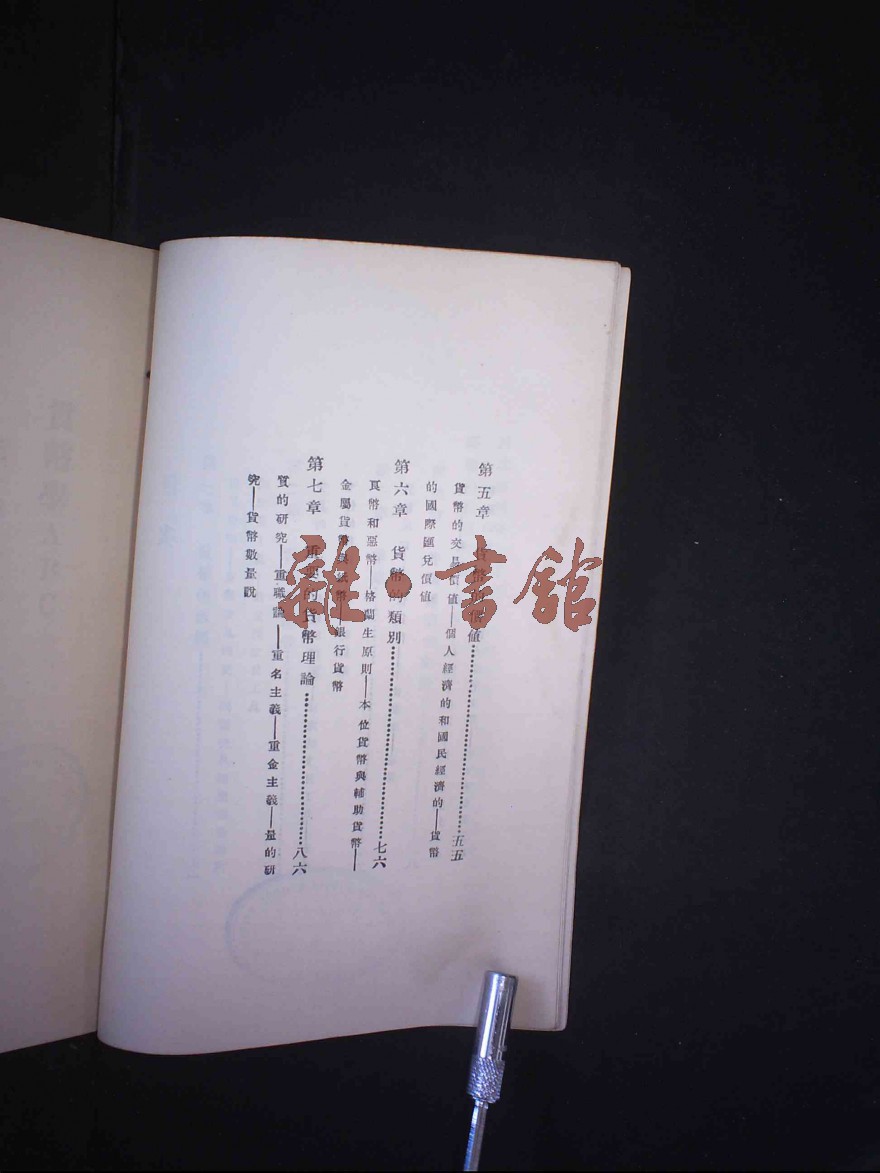 第五章 貨幣的價値…………五五
貨幣的交易價値——個人經濟的和國民經濟的——貨幣
的國際匯兌價値
第六章 貨幣的類別…………七六
良幣和惡幣——格蘭生原則——本位貨幣與輔助貨幣——
金屬貨幣與紙幣——銀行貨幣
第七章 重要的貨幣理論…………八六
質的研究——重職說——重名主義——重金主義——量的研
究——貨幣數量說
雜·書館